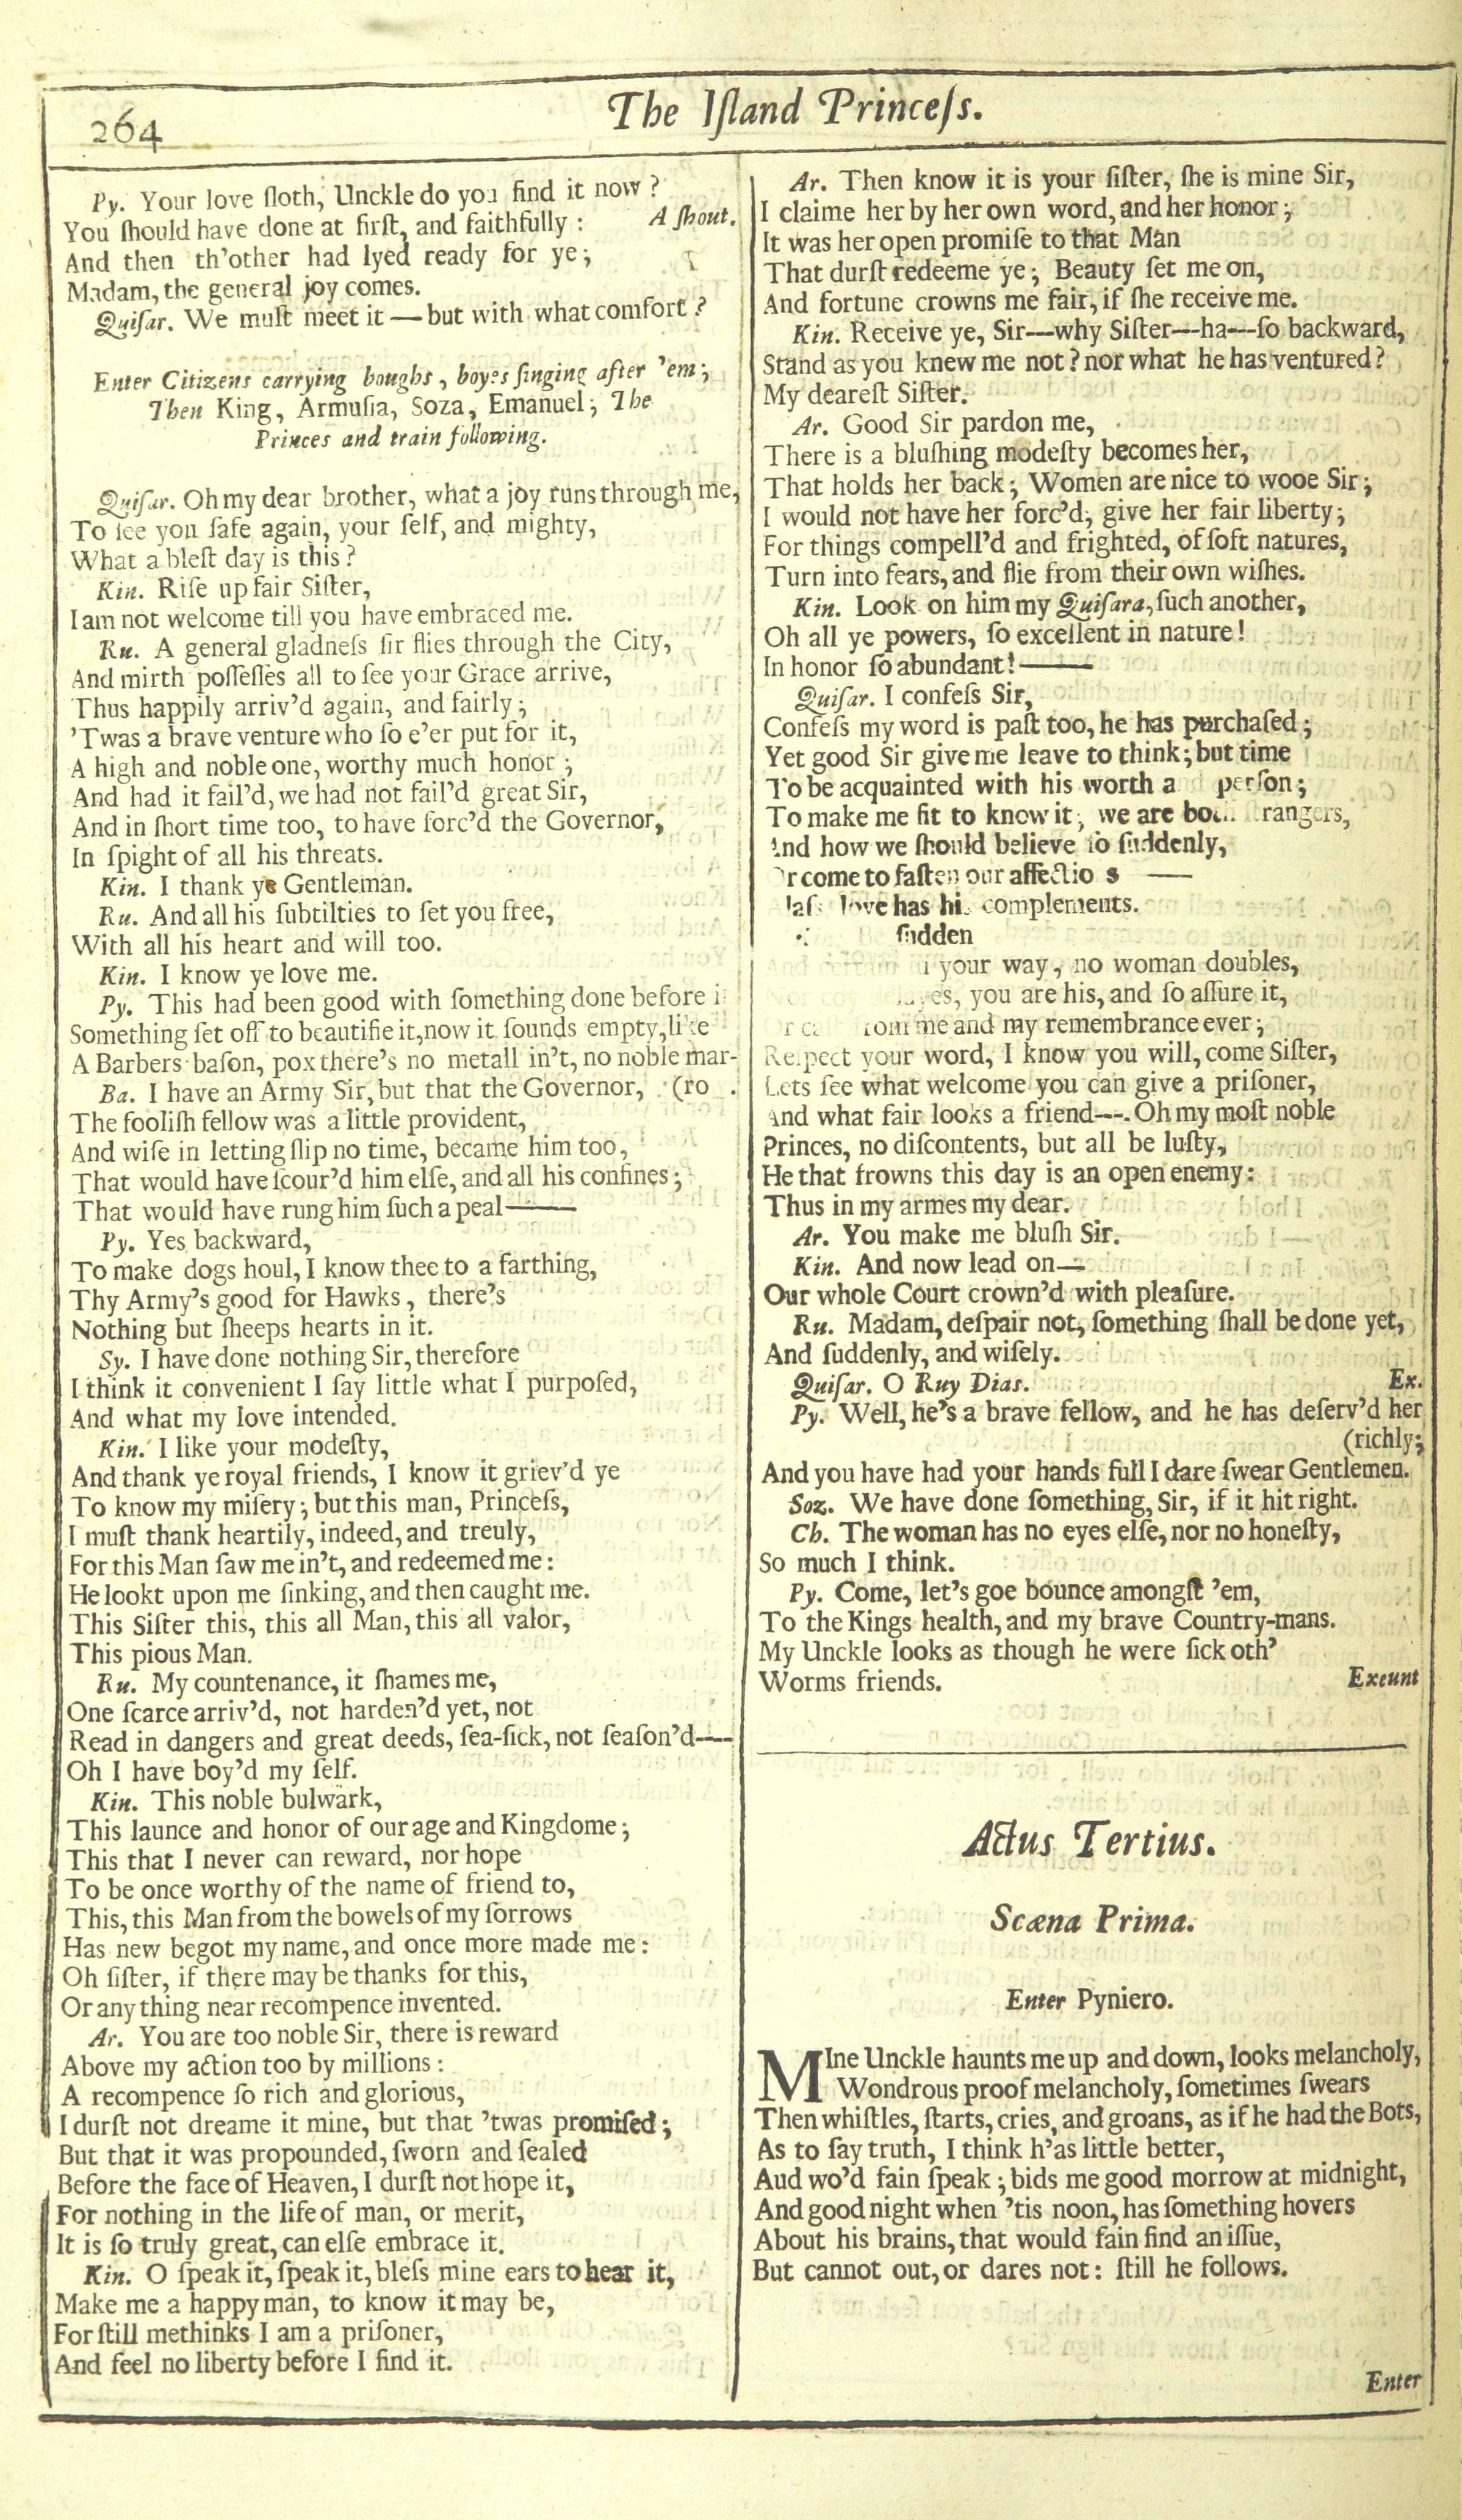 264
The Iſland Princeſs.
Py. Your love ſloth, Unckle do you find it now ?
You ſhould have done at firſt, and faithfully : A ſhout.
And then th'other had lyed ready for ye ;
Madam, the general joy comes.
Quiſar. We muſt meet it — but with what comfort ?
Enter Citizens carrying boughs, boyes ſinging after 'em ;
Then King, Armuſia, Soza, Emanuel ; The
Princes and train following.
Quiſar. Oh my dear brother, what a joy runs through me,
To ſee you ſafe again, your ſelf, and mighty,
What a bleſt day is this ?
Kin. Riſe up fair Siſter,
I am not welcome till you have embraced me.
Ru. A general gladneſs ſir flies through the City,
And mirth poſſeſſes all to ſee your Grace arrive,
Thus happily arriv'd again, and fairly ;
'Twas a brave venture who ſo e'er put for it,
A high and noble one, worthy much honor ;
And had it fail'd, we had not fail'd great Sir,
And in ſhort time too, to have forc'd the Governor,
In ſpight of all his threats.
Kin. I thank ye Gentleman.
Ru. And all his ſubtilties to ſet you free,
With all his heart and will too.
Kin. I know ye love me.
Py. This had been good with ſomething done before i
Something ſet off to beautifie it, now it ſounds empty, like
A Barbers baſon, pox there's no metall in't, no noble mar-
Ba. I have an Army Sir, but that the Governor, (ro .
The fooliſh fellow was a little provident,
And wiſe in letting ſlip no time, became him too,
That would have ſcour'd him elſe, and all his confines ;
That would have rung him ſuch a peal——
Py. Yes backward,
To make dogs houl, I know thee to a farthing,
Thy Army's good for Hawks, there's
Nothing but ſheeps hearts in it.
Sy. I have done nothing Sir, therefore
I think it convenient I ſay little what I purpoſed,
And what my love intended.
Kin. I like your modeſty,
And thank ye royal friends, I know it griev'd ye
To know my miſery ; but this man, Princeſs,
I muſt thank heartily, indeed, and treuly,
For this Man ſaw me in't, and redeemed me :
He lookt upon me ſinking, and then caught me.
This Siſter this, this all Man, this all valor,
This pious Man.
Ru. My countenance, it ſhames me,
One ſcarce arriv'd, not harden'd yet, not
Read in dangers and great deeds, ſea-ſick, not ſeaſon'd—
Oh I have boy'd my ſelf.
Kin. This noble bulwark,
This launce and honor of our age and Kingdome ;
This that I never can reward, nor hope
To be once worthy of the name of friend to,
This, this Man from the bowels of my ſorrows
Has new begot my name, and once more made me :
Oh ſiſter, if there may be thanks for this,
Or any thing near recompence invented.
Ar. You are too noble Sir, there is reward
Above my action too by millions :
A recompence ſo rich and glorious,
I durſt not dreame it mine, but that 'twas promiſed ;
But that it was propounded, ſworn and ſealed
Before the face of Heaven, I durſt not hope it,
For nothing in the life of man, or merit,
It is ſo truly great, can elſe embrace it.
Kin. O ſpeak it, ſpeak it, bleſs mine ears to hear it,
Make me a happy man, to know it may be,
For ſtill methinks I am a priſoner,
And feel no liberty before I find it.
Ar. Then know it is your ſiſter, ſhe is mine Sir,
I claime her by her own word, and her honor ;
It was her open promiſe to that Man
That durſt redeeme ye ; Beauty ſet me on,
And fortune crowns me fair, if ſhe receive me.
Kin. Receive ye, Sir—why Siſter—ha—ſo backward,
Stand as you knew me not ? nor what he has ventured ?
My deareſt Siſter.
Ar. Good Sir pardon me,
There is a bluſhing modeſty becomes her,
That holds her back ; Women are nice to wooe Sir ;
I would not have her forc'd, give her fair liberty ;
For things compell'd and frighted, of ſoft natures,
Turn into fears, and flie from their own wiſhes.
Kin. Look on him my Quiſara, ſuch another,
Oh all ye powers, ſo excellent in nature !
In honor ſo abundant !——
Quiſar. I confeſs Sir,
Confeſs my word is paſt too, he has purchaſed ;
Yet good Sir give me leave to think ; but time
To be acquainted with his worth a perſon ;
To make me fit to know it, we are rangers,
And how we ſhould believe ſo ſuddenly,
r come to faſten our affectio s ——
love has complements.
ſudden
your way, no woman doubles,
you are his, and ſo aſſure it,
me and my remembrance ever ;
Reſpect your word, I know you will, come Siſter,
Lets ſee what welcome you can give a priſoner,
And what fair looks a friend---. Oh my moſt noble
Princes, no diſcontents, but all be luſty,
He that frowns this day is an open enemy :
Thus in my armes my dear.
Ar. You make me bluſh Sir.
Kin. And now lead on—
Our whole Court crown'd with pleaſure.
Ru. Madam, deſpair not, ſomething ſhall be done yet,
And ſuddenly, and wiſely.
Quiſar. O Ruy Dias. Ex.
Py. Well, he's a brave fellow, and he has deſerv'd her
(richly ;
And you have had your hands full I dare ſwear Gentlemen.
Soz. We have done ſomething, Sir, if it hit right.
Ch. The woman has no eyes elſe, nor no honeſty,
So much I think.
Py. Come, let's goe bounce amongſt 'em,
To the Kings health, and my brave Country-mans.
My Unckle looks as though he were ſick oth'
Worms friends. Exeunt
Actus Tertius.
Scæna Prima.
Enter Pyniero.
MIne Unckle haunts me up and down, looks melancholy,
Wondrous proof melancholy, ſometimes ſwears
Then whiſtles, ſtarts, cries, and groans, as if he had the Bots,
As to ſay truth, I think h'as little better,
Aud wo'd fain ſpeak ; bids me good morrow at midnight,
And good night when 'tis noon, has ſomething hovers
About his brains, that would fain find an iſſue,
But cannot out, or dares not : ſtill he follows.
Enter